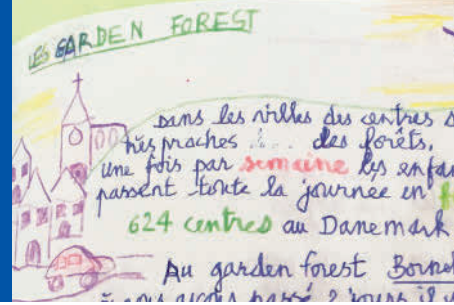 LES GARDEN FOREST
Dans les villes des centres s
très proches des forêts.
Une fois par semaine les enfan
passent toute la journée en f
624 centres au Danemark
Au garden forest Borneh
nous avons passé 2 jours il y